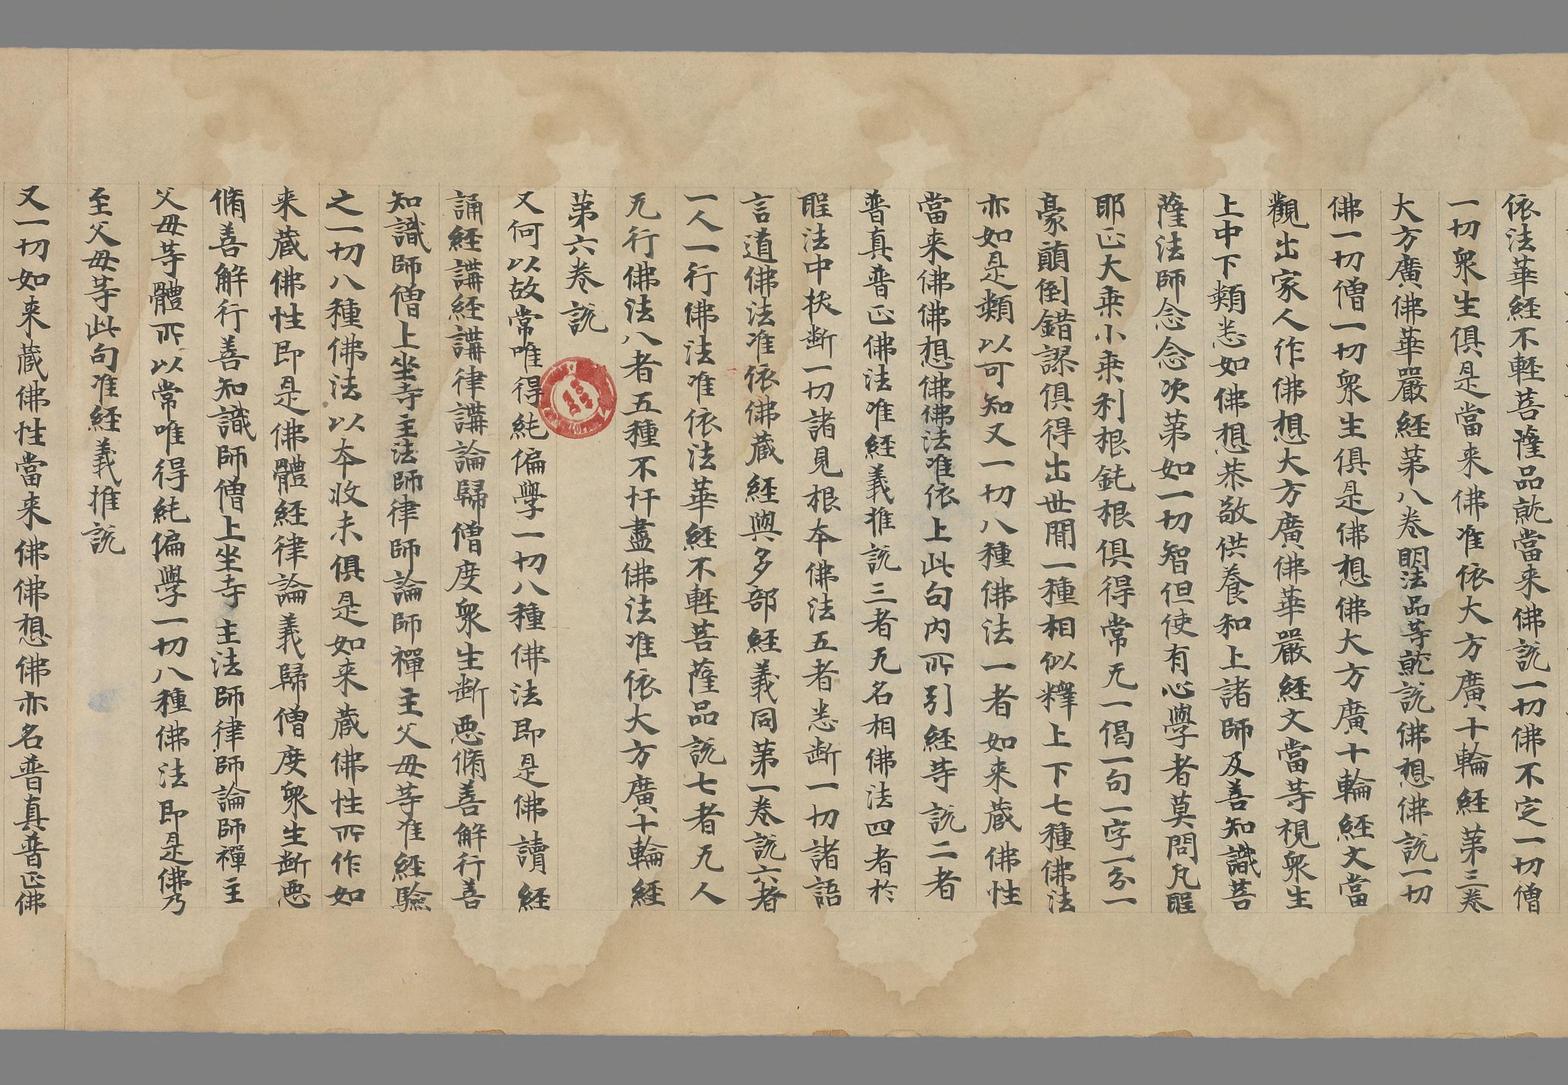 依法華經不輕菩薩品說當来佛說一切佛不定一切僧
一切衆生俱是當来佛准依大方廣十輪經第三卷
大方廣佛華嚴經第八卷明法品等就說佛想佛說一切
佛一切僧一切衆生俱是佛想佛大方廣十輪經文當
觀出家人作佛想大方廣佛華嚴經文當等視衆生
上中下類悉如佛想恭敬供養和上諸師及善知識菩
薩法師念念次第如一切智但使有心學者莫問凡聖
耶正大乘小乘利根鈍根俱得常凡一偈一句一字一分一
豪顛倒錯謬俱得出世間一種相似釋上下七種佛法
亦如是類以可知又一切八種佛法一者如来藏佛性
當来佛佛想佛佛法准依上此句内所引經等說二者
普真普正佛法准經義推說三者无名相佛法四者於
聖法中拔斷一切諸見根本佛法五者悉斷一切諸語
言道佛法准依佛藏經與多部經義同第一卷說六者
一人一行佛法准依法華經不輕菩薩品說七者凡人
凡行佛法八者五種不扞盡佛法准依大方廣十輪經
第六卷說
又何以故常唯得純偏學一切八種佛法即是佛讀經
誦經講經講律講論歸僧度衆生斷惡脩善解行善
知識師僧上坐寺主法師律師論師禪主父母等准經驗
之一切八種佛法以本收末俱是如来藏佛性所作如
来藏佛性即是佛體經律論義歸僧度衆生斷惡
脩善解行善知識師僧上坐寺主法師律師論師禪主
父母等體所以常唯得純偏學一切八種佛法即是佛乃
至父母等此句准經義推說
又一切如来藏佛性當来佛佛想佛亦名普真普正佛